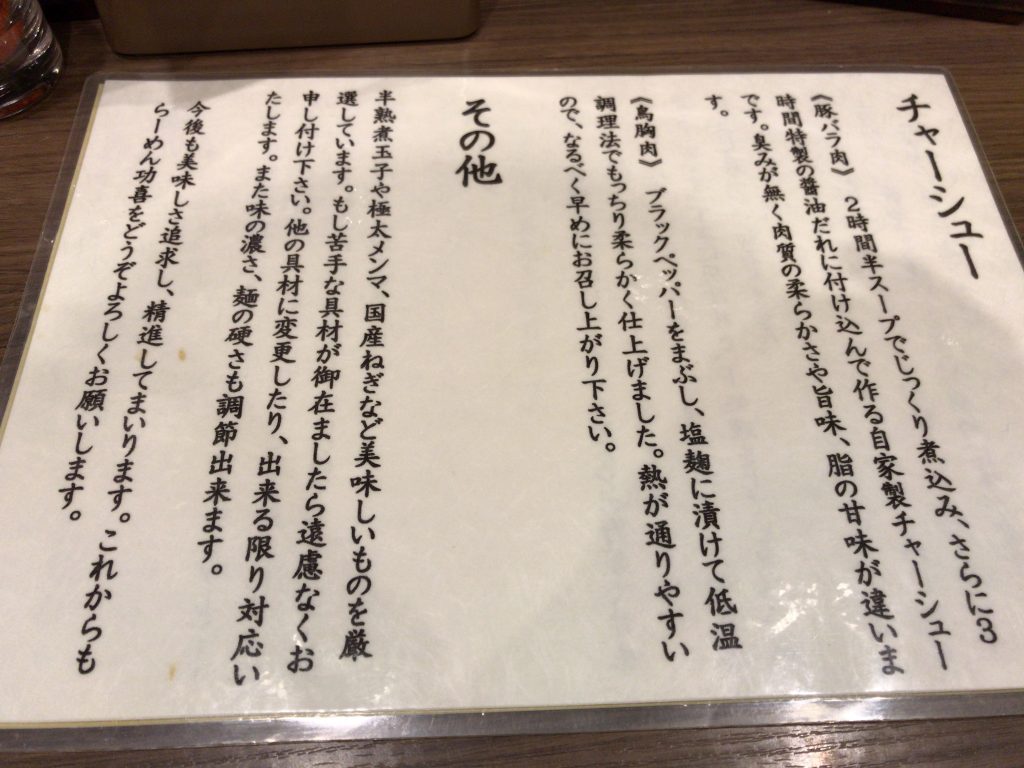 チャーシュー
《豚バラ肉》 2時間半スープでじっくり煮込み、さらに3
時間特製の醤油だれに付け込んで作る自家製チャーシュー
です。臭みが無く肉質の柔らかさや旨味、脂の甘味が違いま
す。
《鳥胸肉》 ブラックペッパーをまぶし、塩麹に漬けて低温
調理法でもっちり柔らかく仕上げました。熱が通りやすい
ので、なるべく早めにお召し上がり下さい。
その他
半熟煮玉子や極太メンマ、国産ねぎなど美味しいものを厳
選しています。もし苦手な具材が御在ましたら遠慮なくお
申し付け下さい。他の具材に変更したり、出来る限り対応い
たします。また味の濃さ、麺の硬さも調節出来ます。
今後も美味しさ追求し、精進してまいります。これからも
らーめん功喜をどうぞよろしくお願いします。